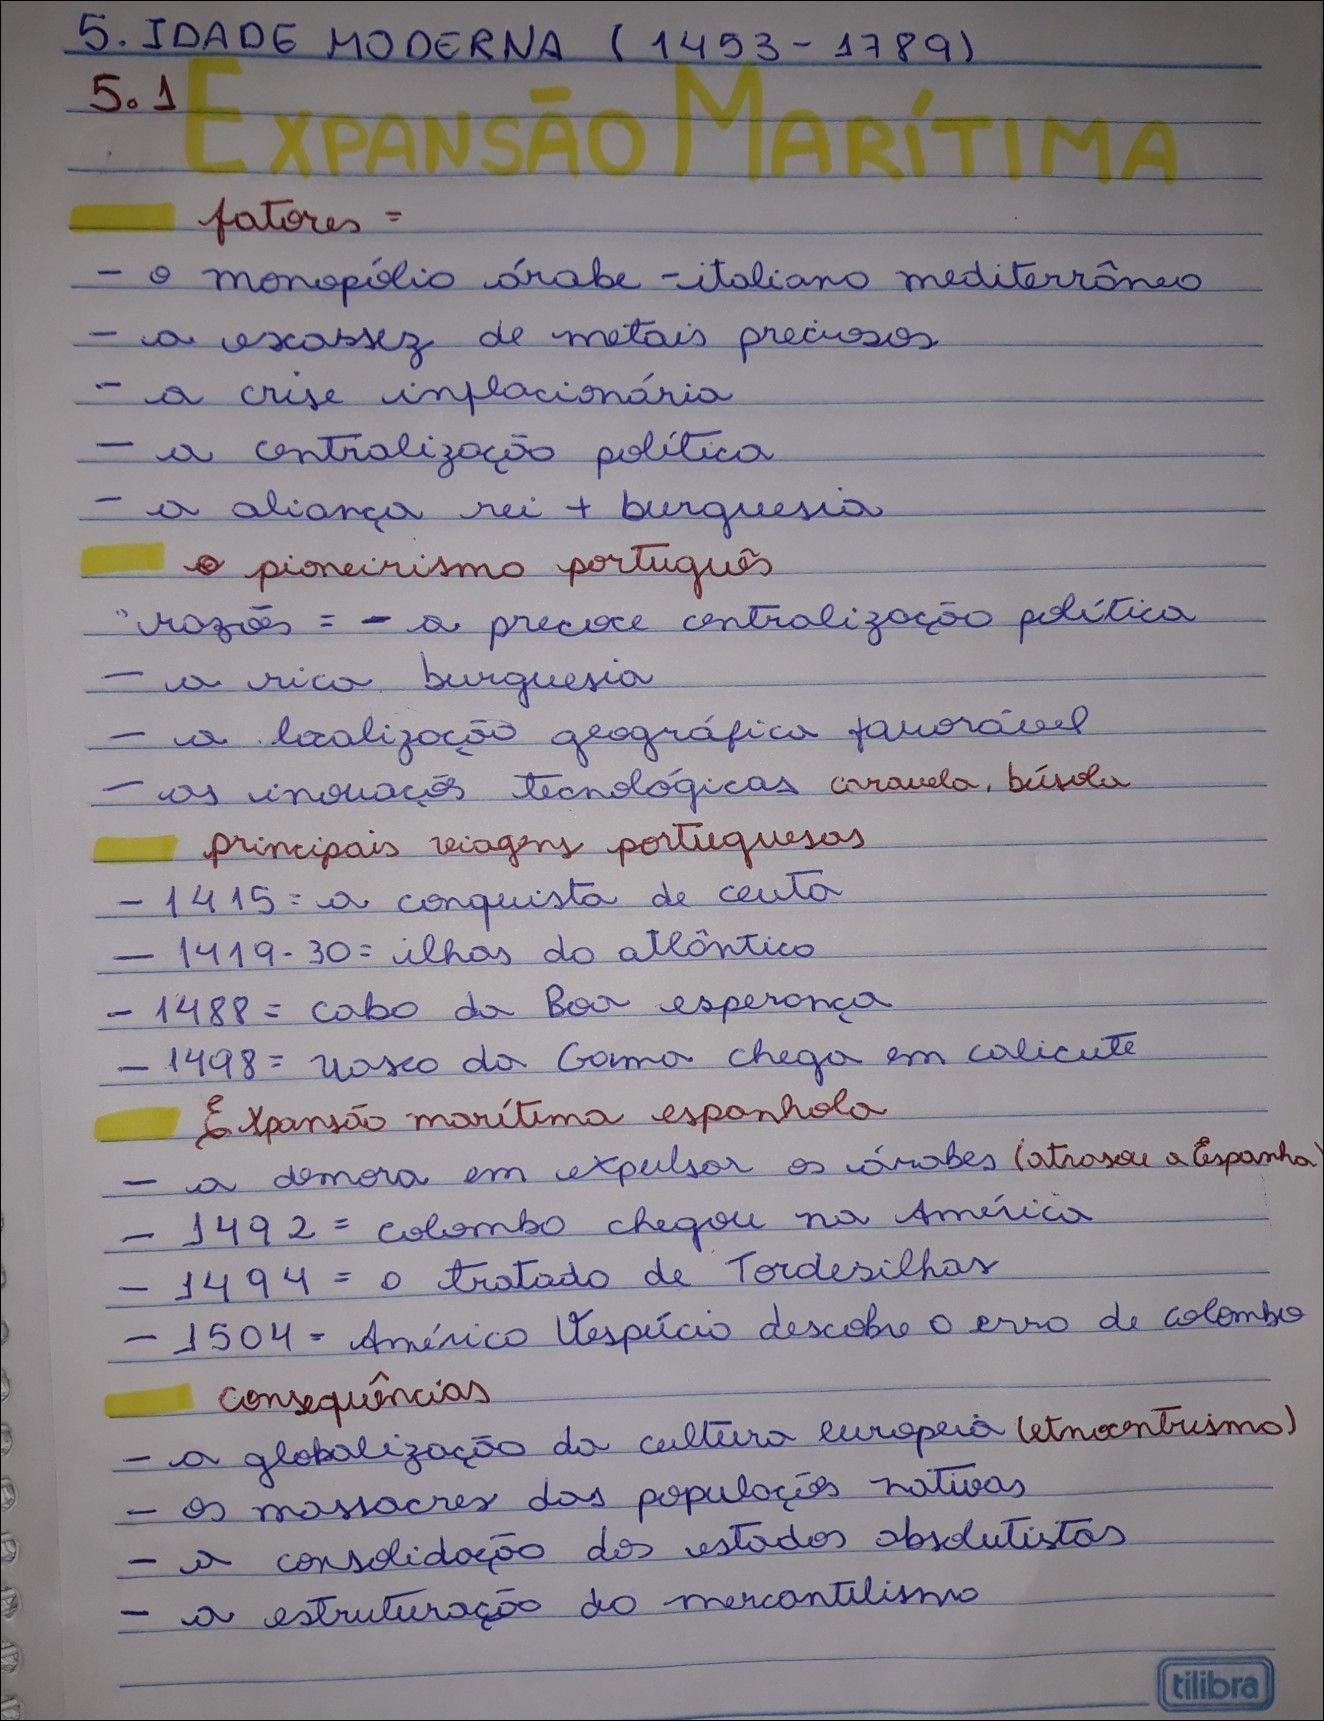 5. IDADE MODERNA (1453-1789)
5.1 EXPANSÃO MARÍTIMA
fatores =
- o monopólio árabe-italiano mediterrâneo
- a escassez de metais preciosos
- a crise inflacionária
- a centralização política
- a aliança rei + burguesia
o pioneirismo português
razões = - a precoce centralização política
- a rica burguesia
- a localização geográfica favorável
- as inovações tecnológicas caravela, búsola
principais viagens portuguesas
- 1415 = a conquista de ceuta
- 1419-30 = ilhas do atlântico
- 1488 = cabo da Boa esperança
- 1498 = Vasco da Gama chega em calicute
Expansão marítima espanhola
- a demora em expulsar os árabes (atrasou a Espanha)
- 1492 = colombo chegou na América
- 1494 = o tratado de Tordesilhas
- 1504 = Américo Vespúcio descobre o erro de colombo
consequências
- a globalização da cultura europeia (etnocentrismo)
- os massacres das populações nativas
- a consolidação dos estados absolutistas
- a estruturação do mercantilismo
tilibra